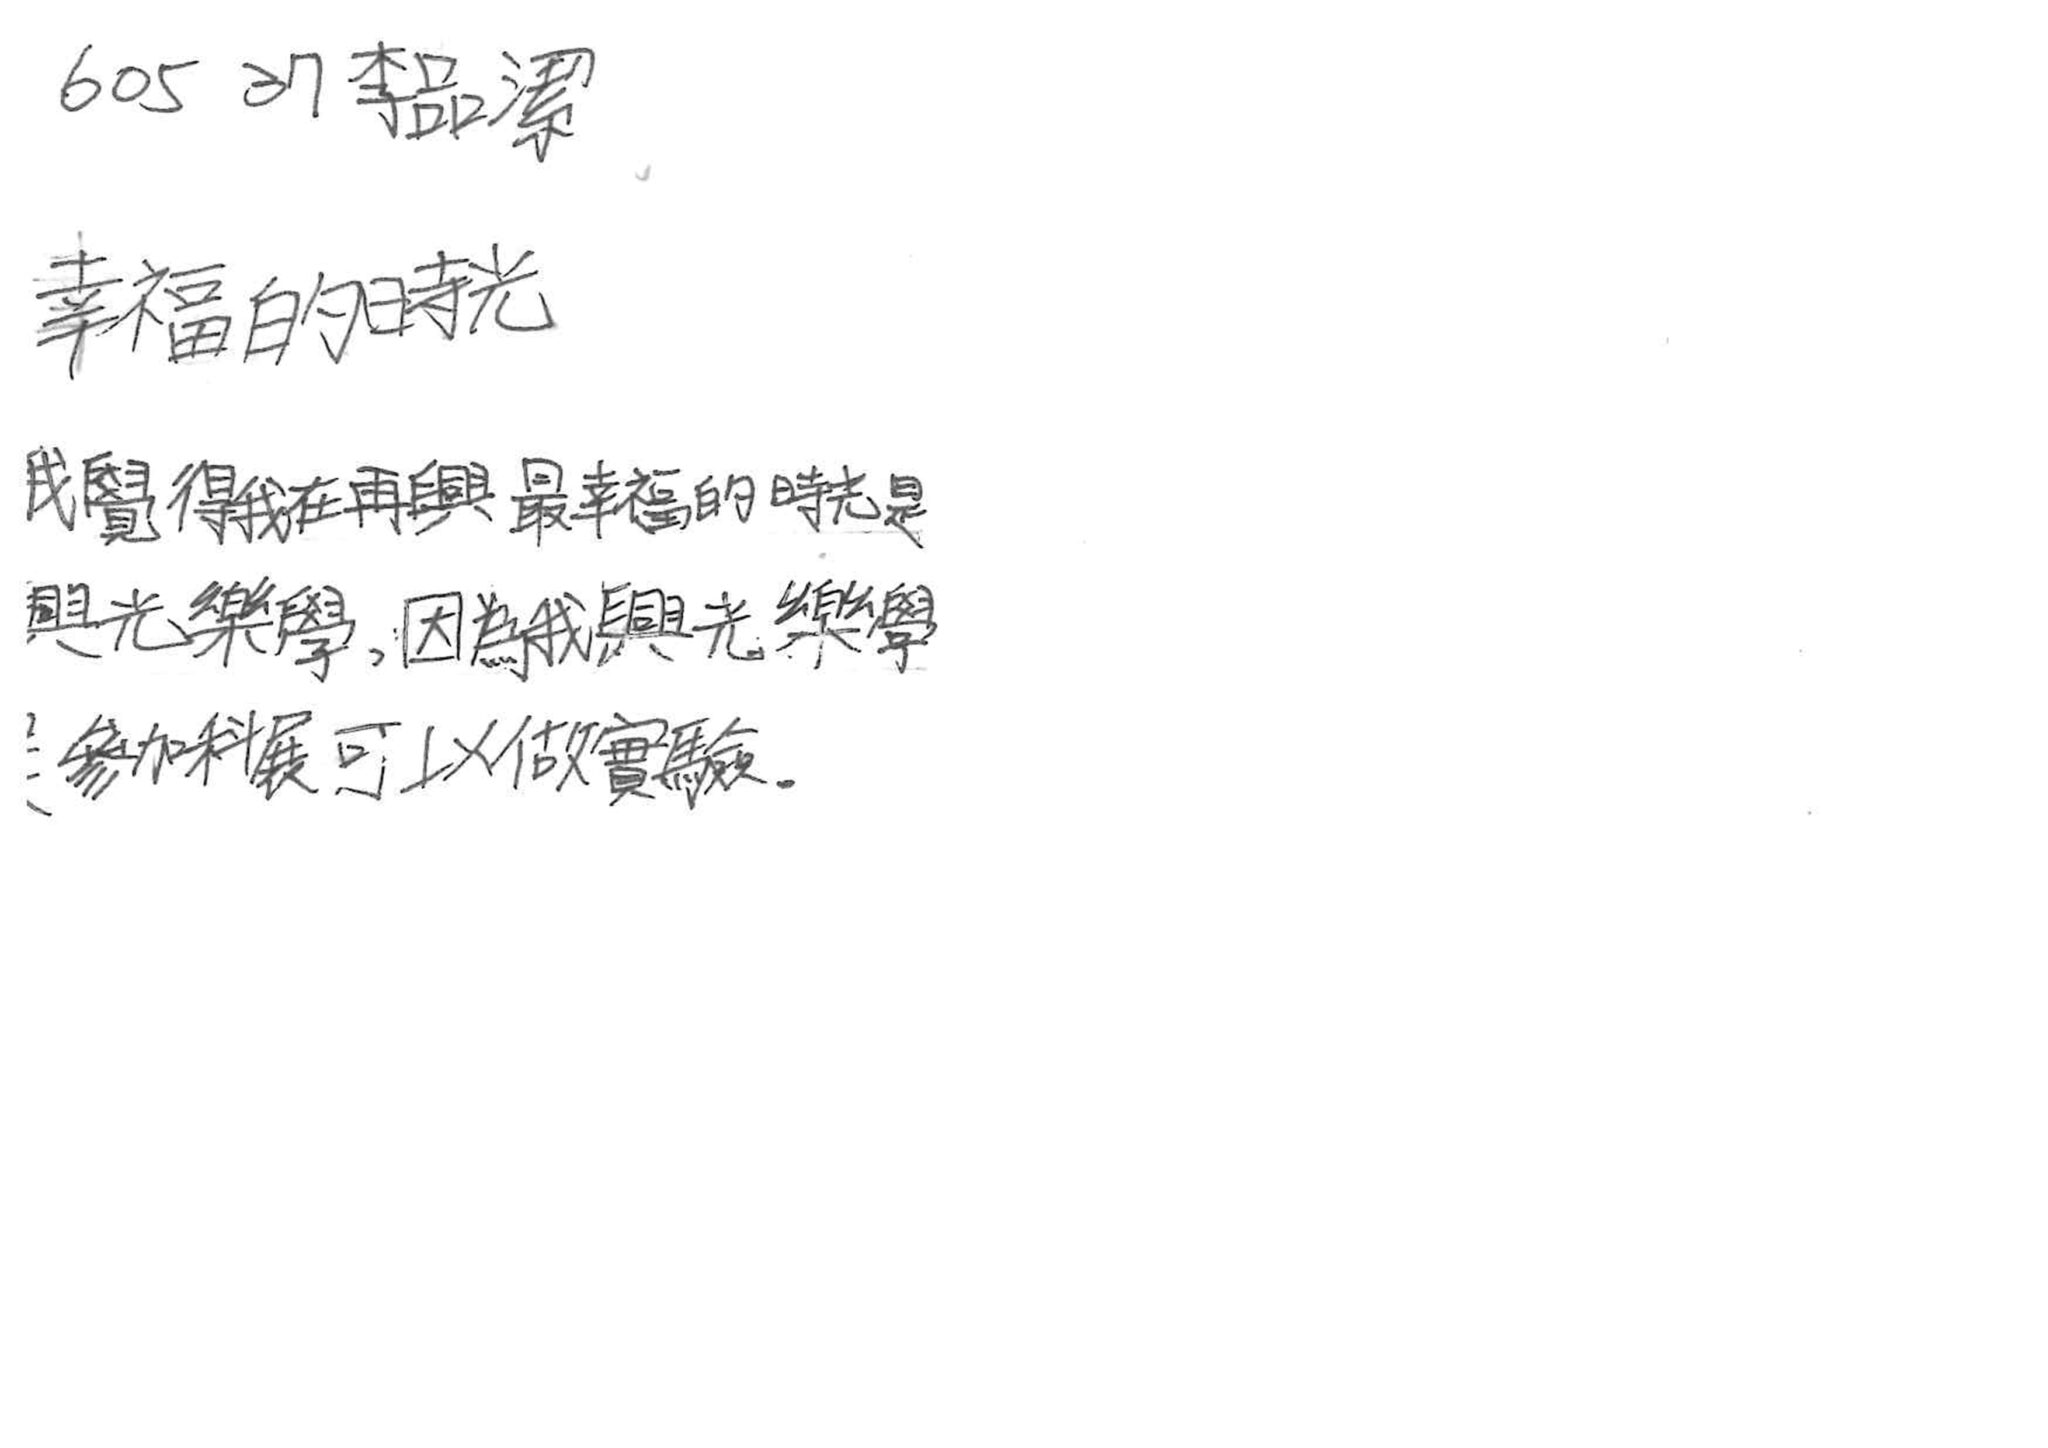 605 27 李品潔
幸福的時光
我覺得我在再興最幸福的時光是
興光樂學,因為我興光樂學
參加科展可以做實驗。